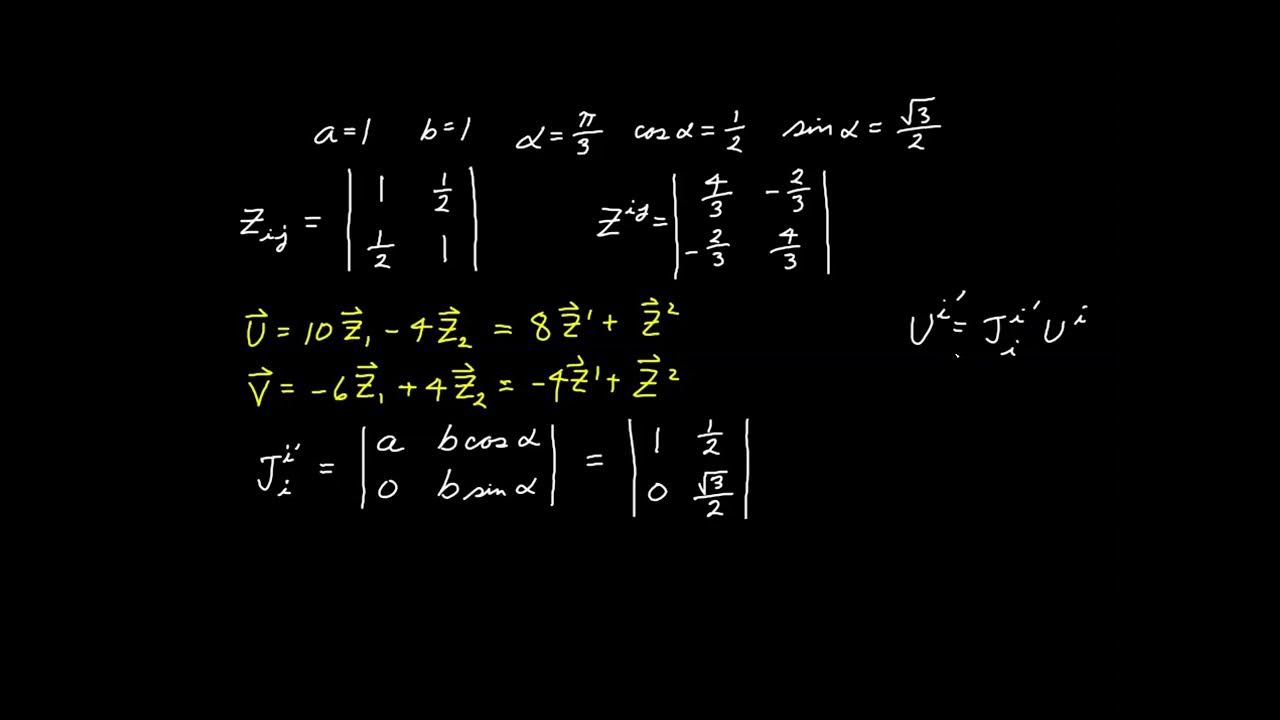 a=1 b=1 α=π/3 cos α=1/2 sin α=√3/2
Z_ij = | 1 1/2 | Z^ij = | 4/3 -2/3 |
| 1/2 1 | | -2/3 4/3 |
U⃗ = 10Z⃗_1 - 4Z⃗_2 = 8Z⃗^1 + Z⃗^2 U^i' = J^i'_i U^i
V⃗ = -6Z⃗_1 + 4Z⃗_2 = -4Z⃗^1 + Z⃗^2
J^i'_i = | a b cos α | = | 1 1/2 |
| 0 b sin α | | 0 √3/2 |